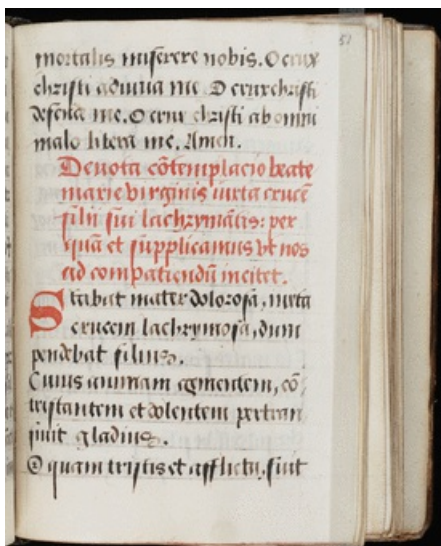 51
mortalis miserere nobis. O crux
christi adiuua me. O crux christi
defend me. O crux christi ab omni
malo libera me. Amen.
Deuota cōtemplacio beate
marie virginis iuxta crucē
filii sui lachrymātis: per
quā et supplicamus vt nos
ad compatiendū incitet.
Stabat mater dolorosa, iuxta
crucem lachrymosa, dum
pendebat filius.
Cuius animam gementem, cō-
tristantem et dolentem pertran
siuit gladius.
O quam tristis et afflicta, fuit